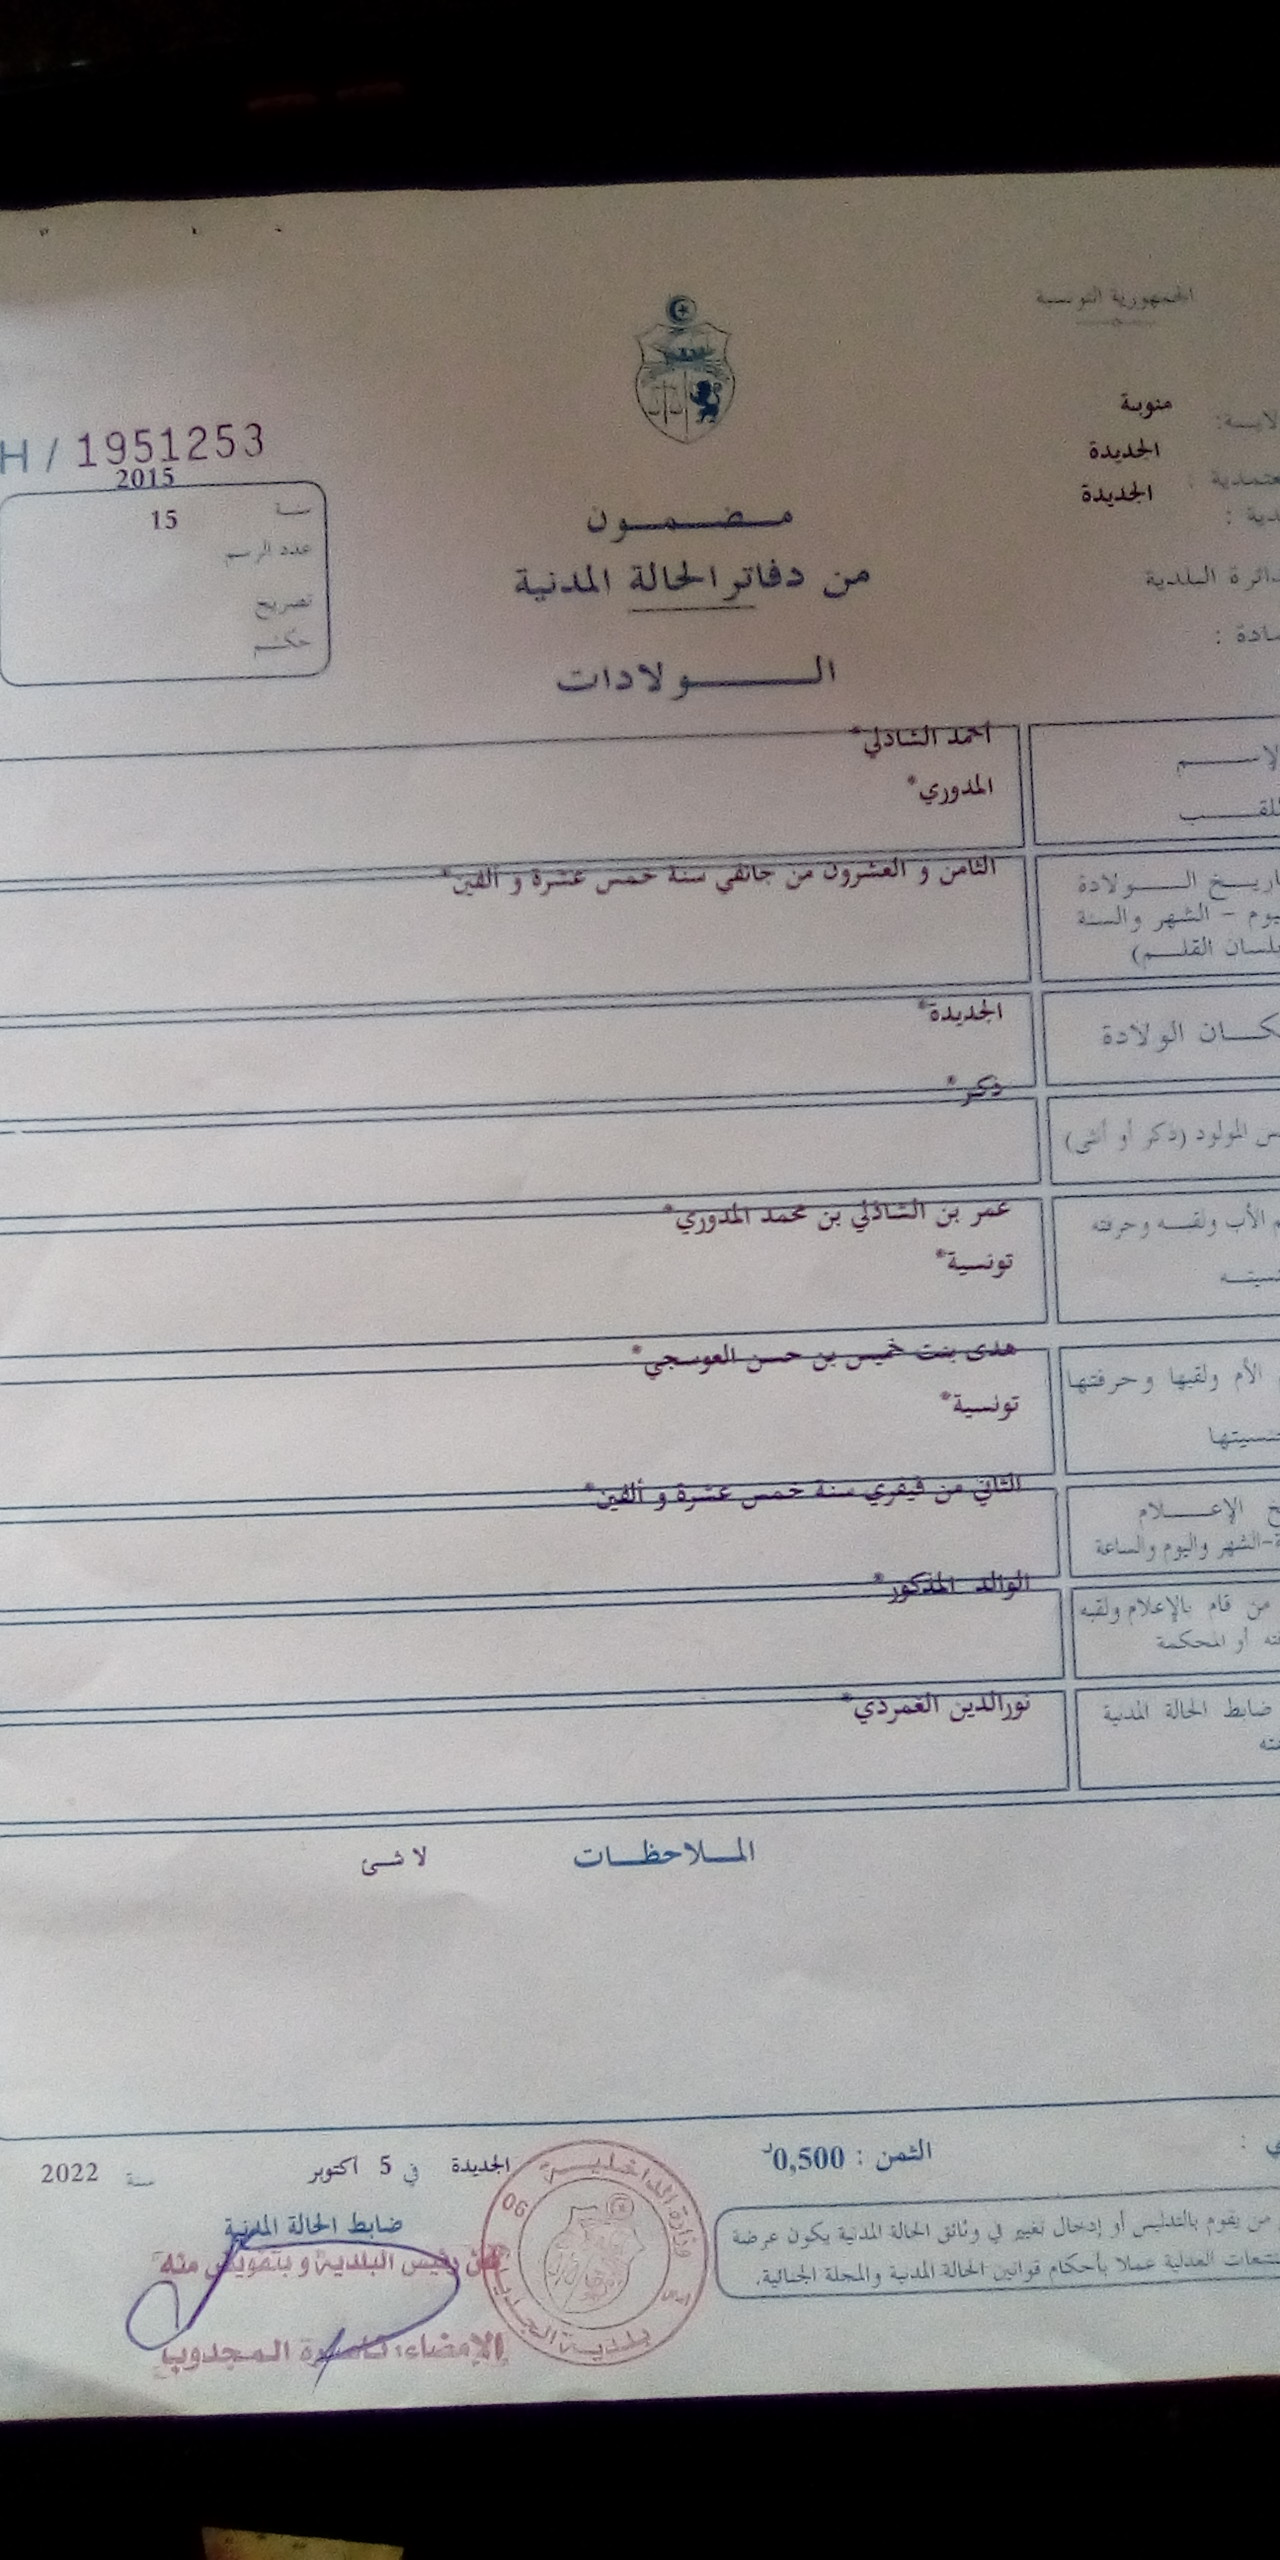 الجمهورية التونسية
منوبة
الجديدة
معتمدية :
الجديدة
دائرة البلدية
H / 1951253
2015
سنة
15
عدد الرسم
تصريح
حكم
مضمون
من دفاتر الحالة المدنية
الولادات
الإسم
أحمد الشاذلي*
اللقب
المدوري*
تاريخ الولادة
الثامن و العشرون من جانفي سنة خمس عشرة و ألفين*
اليوم - الشهر والسنة
بلسان القلم)
مكان الولادة
الجديدة*
ذكر*
المولود (ذكر أو أنثى)
الأب ولقبه وحرفته
عمر بن الشاذلي بن محمد المدوري*
تونسية*
الأم ولقبها وحرفتها
هدى بنت خميس بن حسن العوسجي*
تونسية*
الإعلام
الثاني من فيفري سنة خمس عشرة و ألفين*
-الشهر واليوم والساعة
من قام بالإعلام ولقبه
الوالد المذكور*
أو المحكمة
ضابط الحالة المدنية
نورالدين الغمردي*
الملاحظات
لا شئ
الثمن : 0,500د
الجديدة في 5 اكتوبر سنة 2022
ضابط الحالة المدنية
عن رئيس البلدية و بتفويض منه
الإمضاء: المجدوب
وزارة الداخلية
بلدية الجديدة
06
من يقوم بالتدليس أو إدخال تغيير في وثائق الحالة المدنية يكون عرضة
العدلية عملا بأحكام قوانين الحالة المدنية والمجلة الجنائية.